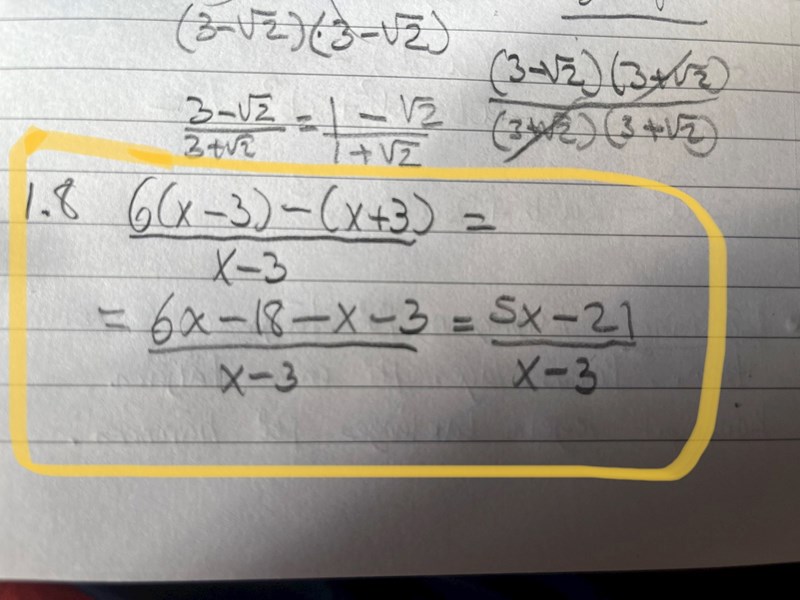 (3-√2)(3-√2)
(3-√2)(3+√2)
(3+√2)(3+√2)
3-√2 / 3+√2 = 1-√2 / 1+√2
1.8 6(x-3)-(x+3) / x-3 =
= 6x-18-x-3 / x-3 = 5x-21 / x-3